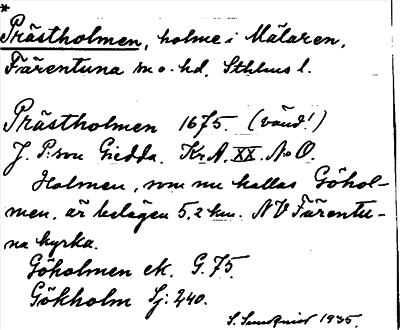 *
Prästholmen, holme i Mälaren,
Färentuna sn o. hd, Sthlms l.
Prästholmen 1675. (vänd!)
J. P:son Giedda. Kr.A. XX. No O.
Holmen, som nu kallas Göhol-
men, är belägen 5,2 km. NV Färentu-
na kyrka.
Göholmen ek. G. 75.
Gökholm Sj: 240.
S. Sundquist 1935.